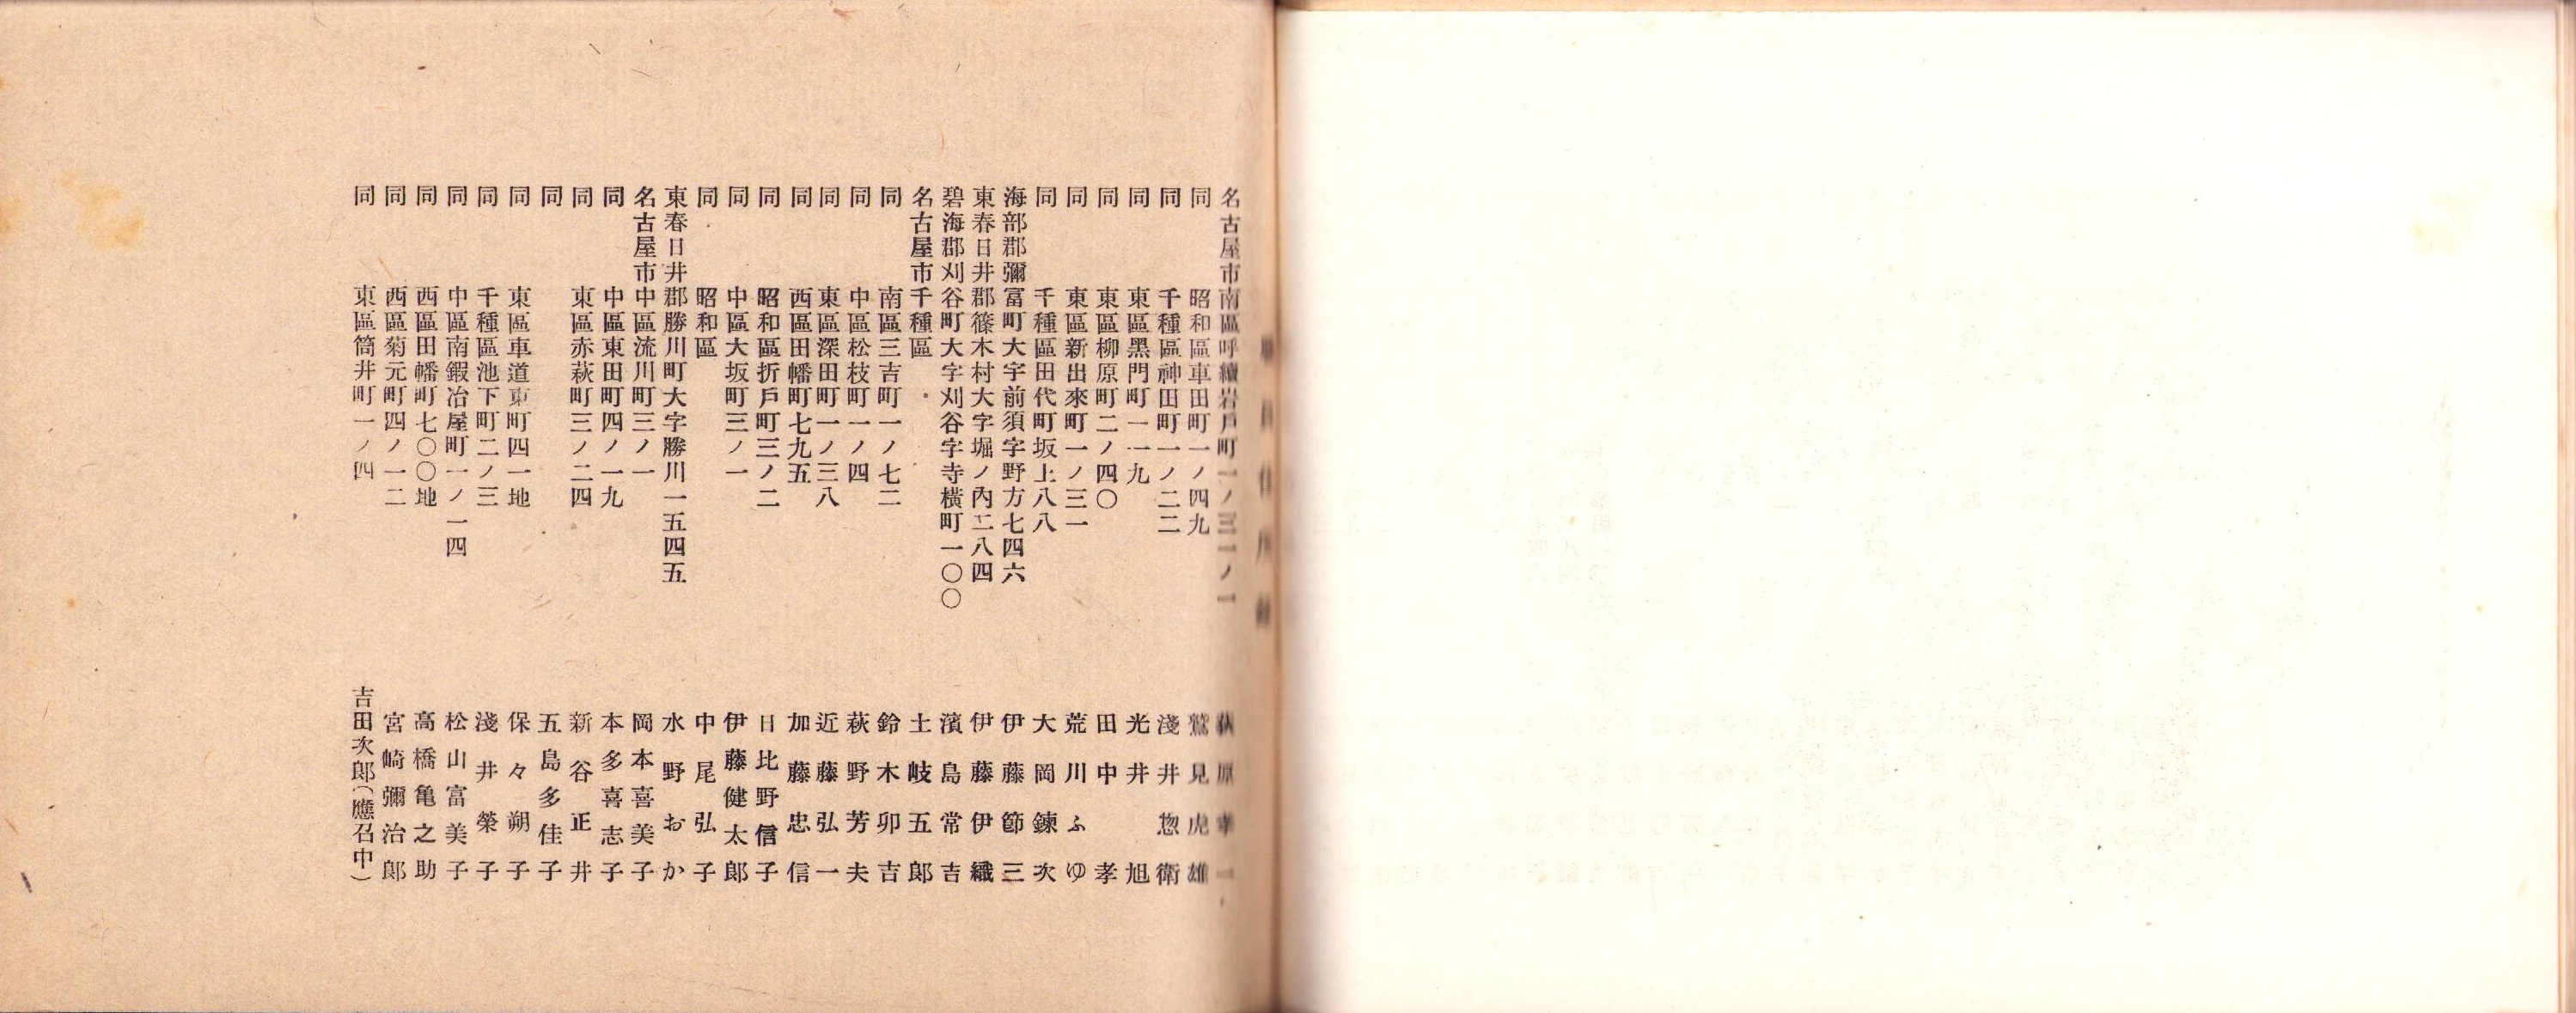 職員住所錄
名古屋市南區呼續岩戶町一ノ三一ノ一 萩原孝一
同 昭和區車田町一ノ四九 鷲見虎雄
同 千種區神田町一ノ二二 淺井惣衛
同 東區黑門町一一九 光井旭
同 東區柳原町二ノ四〇 田中孝
同 東區新出來町一ノ三一 荒川ふゆ
同 千種區田代町坂上八八 大岡鍊次
海部郡彌富町大字前須字野方七四六 伊藤節三
東春日井郡篠木村大字堀ノ內二八四 伊藤伊織
碧海郡刈谷町大字刈谷字寺橫町一〇〇 濱島常吉
名古屋市千種區 土岐五郎
同 南區三吉町一ノ七二 鈴木卯吉
同 中區松枝町一ノ四 萩野芳夫
同 東區深田町一ノ三八 近藤弘一
同 西區田幡町七九五 加藤忠信
同 昭和區折戶町三ノ二 日比野信子
同 中區大坂町三ノ一 伊藤健太郎
同 昭和區 中尾弘子
東春日井郡勝川町大字勝川一五四五 水野おか
名古屋市中區流川町三ノ一 岡本喜美子
同 中區東田町四ノ一九 本多喜志子
同 東區赤萩町三ノ二四 新谷正井
同 五島多佳子
同 東區車道東町四一地 保々朔子
同 千種區池下町二ノ三 淺井榮子
同 中區南鍜冶屋町一ノ一四 松山富美子
同 西區田幡町七〇〇地 高橋亀之助
同 西區菊元町四ノ一二 宮崎彌治郎
同 東區筒井町一ノ四 吉田次郎(應召中)